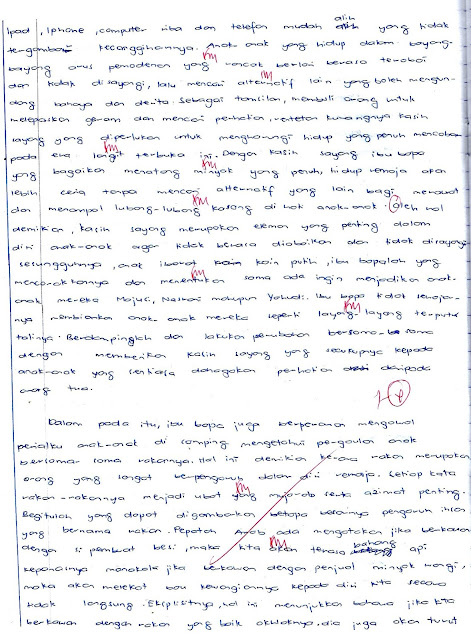 Ipad, Iphone, computer riba dan telefon mudah alih yang tidak
tergambar kecanggihannya. Anak-anak yang hidup dalam bayang-
bayang arus pemodenan yang rancak berlari berasa terabai
dan tidak disayangi, lalu mencari alternatif lain yang boleh mengun-
dang bahaya dan derita. Sebagai tamsilan, membuli orang untuk
melepaskan geram dan mencari perhatian, rentetan kurangnya kasih
sayang yang diperlukan untuk mengharungi hidup yang penuh mencabar
pada era langit terbuka ini. Dengan kasih sayang ibu bapa
yang bagaikan menatang minyak yang penuh, hidup remaja akan
lebih ceria tanpa mencari alternatif yang lain bagi merawat
dan menampal lubang-lubang kosong di hati anak-anak. Oleh hal
demikian, kasih sayang merupakan elemen yang penting dalam
diri anak-anak agar tidak berasa diabaikan dan tidak disayangi
sesungguhnya, anak ibarat kain putih, ibu bapalah yang
mencorakkannya dan menentukan sama ada ingin menjadikan anak-
anak mereka Majusi, Nasrani mahupun Yahudi. Ibu bapa tidak sehaja-
nya membiarkan anak-anak mereka seperti layang-layang terputus
talinya. Berdampinglah dan lakukan perubatan bersama-sama
dengan memberikan kasih sayang yang secukupnya kepada
anak-anak yang sentiasa dahagakan perhatian daripada
orang tua.
Dalam pada itu, ibu bapa juga berperanan mengawal
perilaku anak-anak di samping mengetahui pergaulan anak
bersama-sama rakannya. Hal ini demikian kerana rakan merupakan
orang yang sangat berpengaruh dalam diri remaja. Setiap kata
rakan-rakannya menjadi ubat yang mujarab serta azimat penting.
Begitulah yang dapat digambarkan betapa besarnya pengaruh insan
yang bernama rakan. Pepatah Arab ada mengatakan jika berkawan
dengan si pembuat besi, maka kita akan terasa bahang api
kepanasannya manakala jika berkawan dengan penjual minyak wangi,
maka akan melekat bau kewangiannya kepada diri kita secara
tidak langsung. Eksplisitnya, hal ini menunjukkan bahawa jika kita
berkawan dengan rakan yang baik akhlaknya, dia juga akan turut